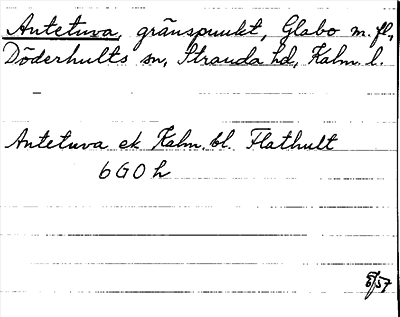 Antetuva, gränspunkt, Glabo m. fl.,
Döderhults sn, Stranda hd, Kalm. l.
Antetuva ek Kalm. bl. Flathult
6 G 0 h
6/57